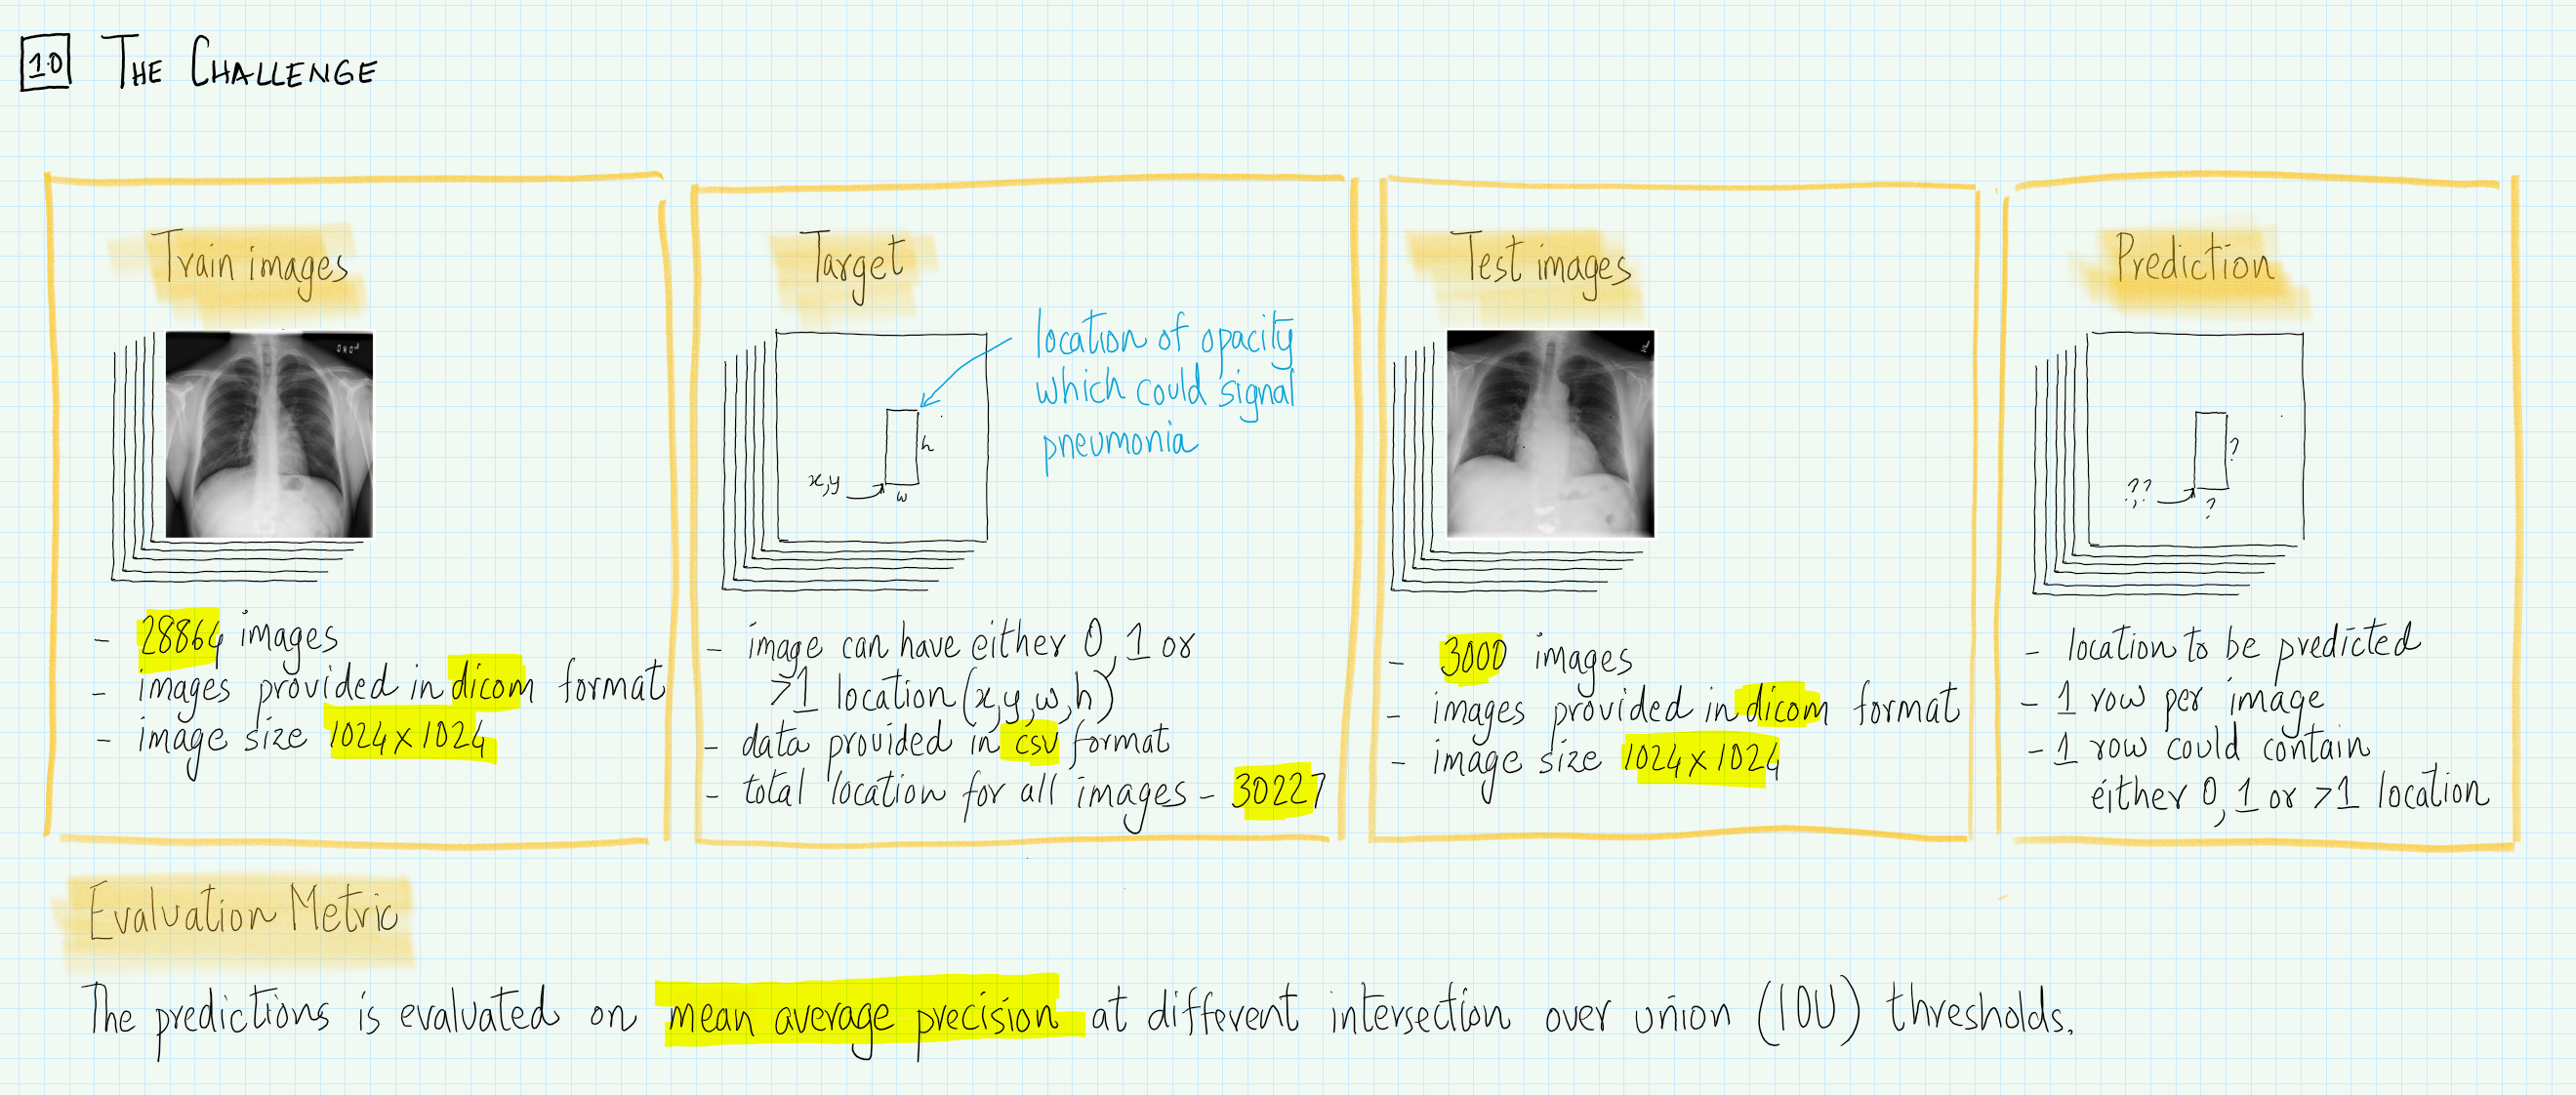 1.0 THE CHALLENGE
Train images
- 28864 images
- images provided in dicom format
- image size 1024x1024
Target
location of opacity
which could signal
pneumonia
h
x,y
w
- image can have either 0, 1 or
>1 location (x,y,w,h)
- data provided in csv format
- total location for all images - 30227
Test images
- 3000 images
- images provided in dicom format
- image size 1024x1024
Prediction
?
?,?
?
- location to be predicted
- 1 row per image
- 1 row could contain
either 0, 1 or >1 location
Evaluation Metric
The predictions is evaluated on mean average precision at different intersection over union (IOU) thresholds.